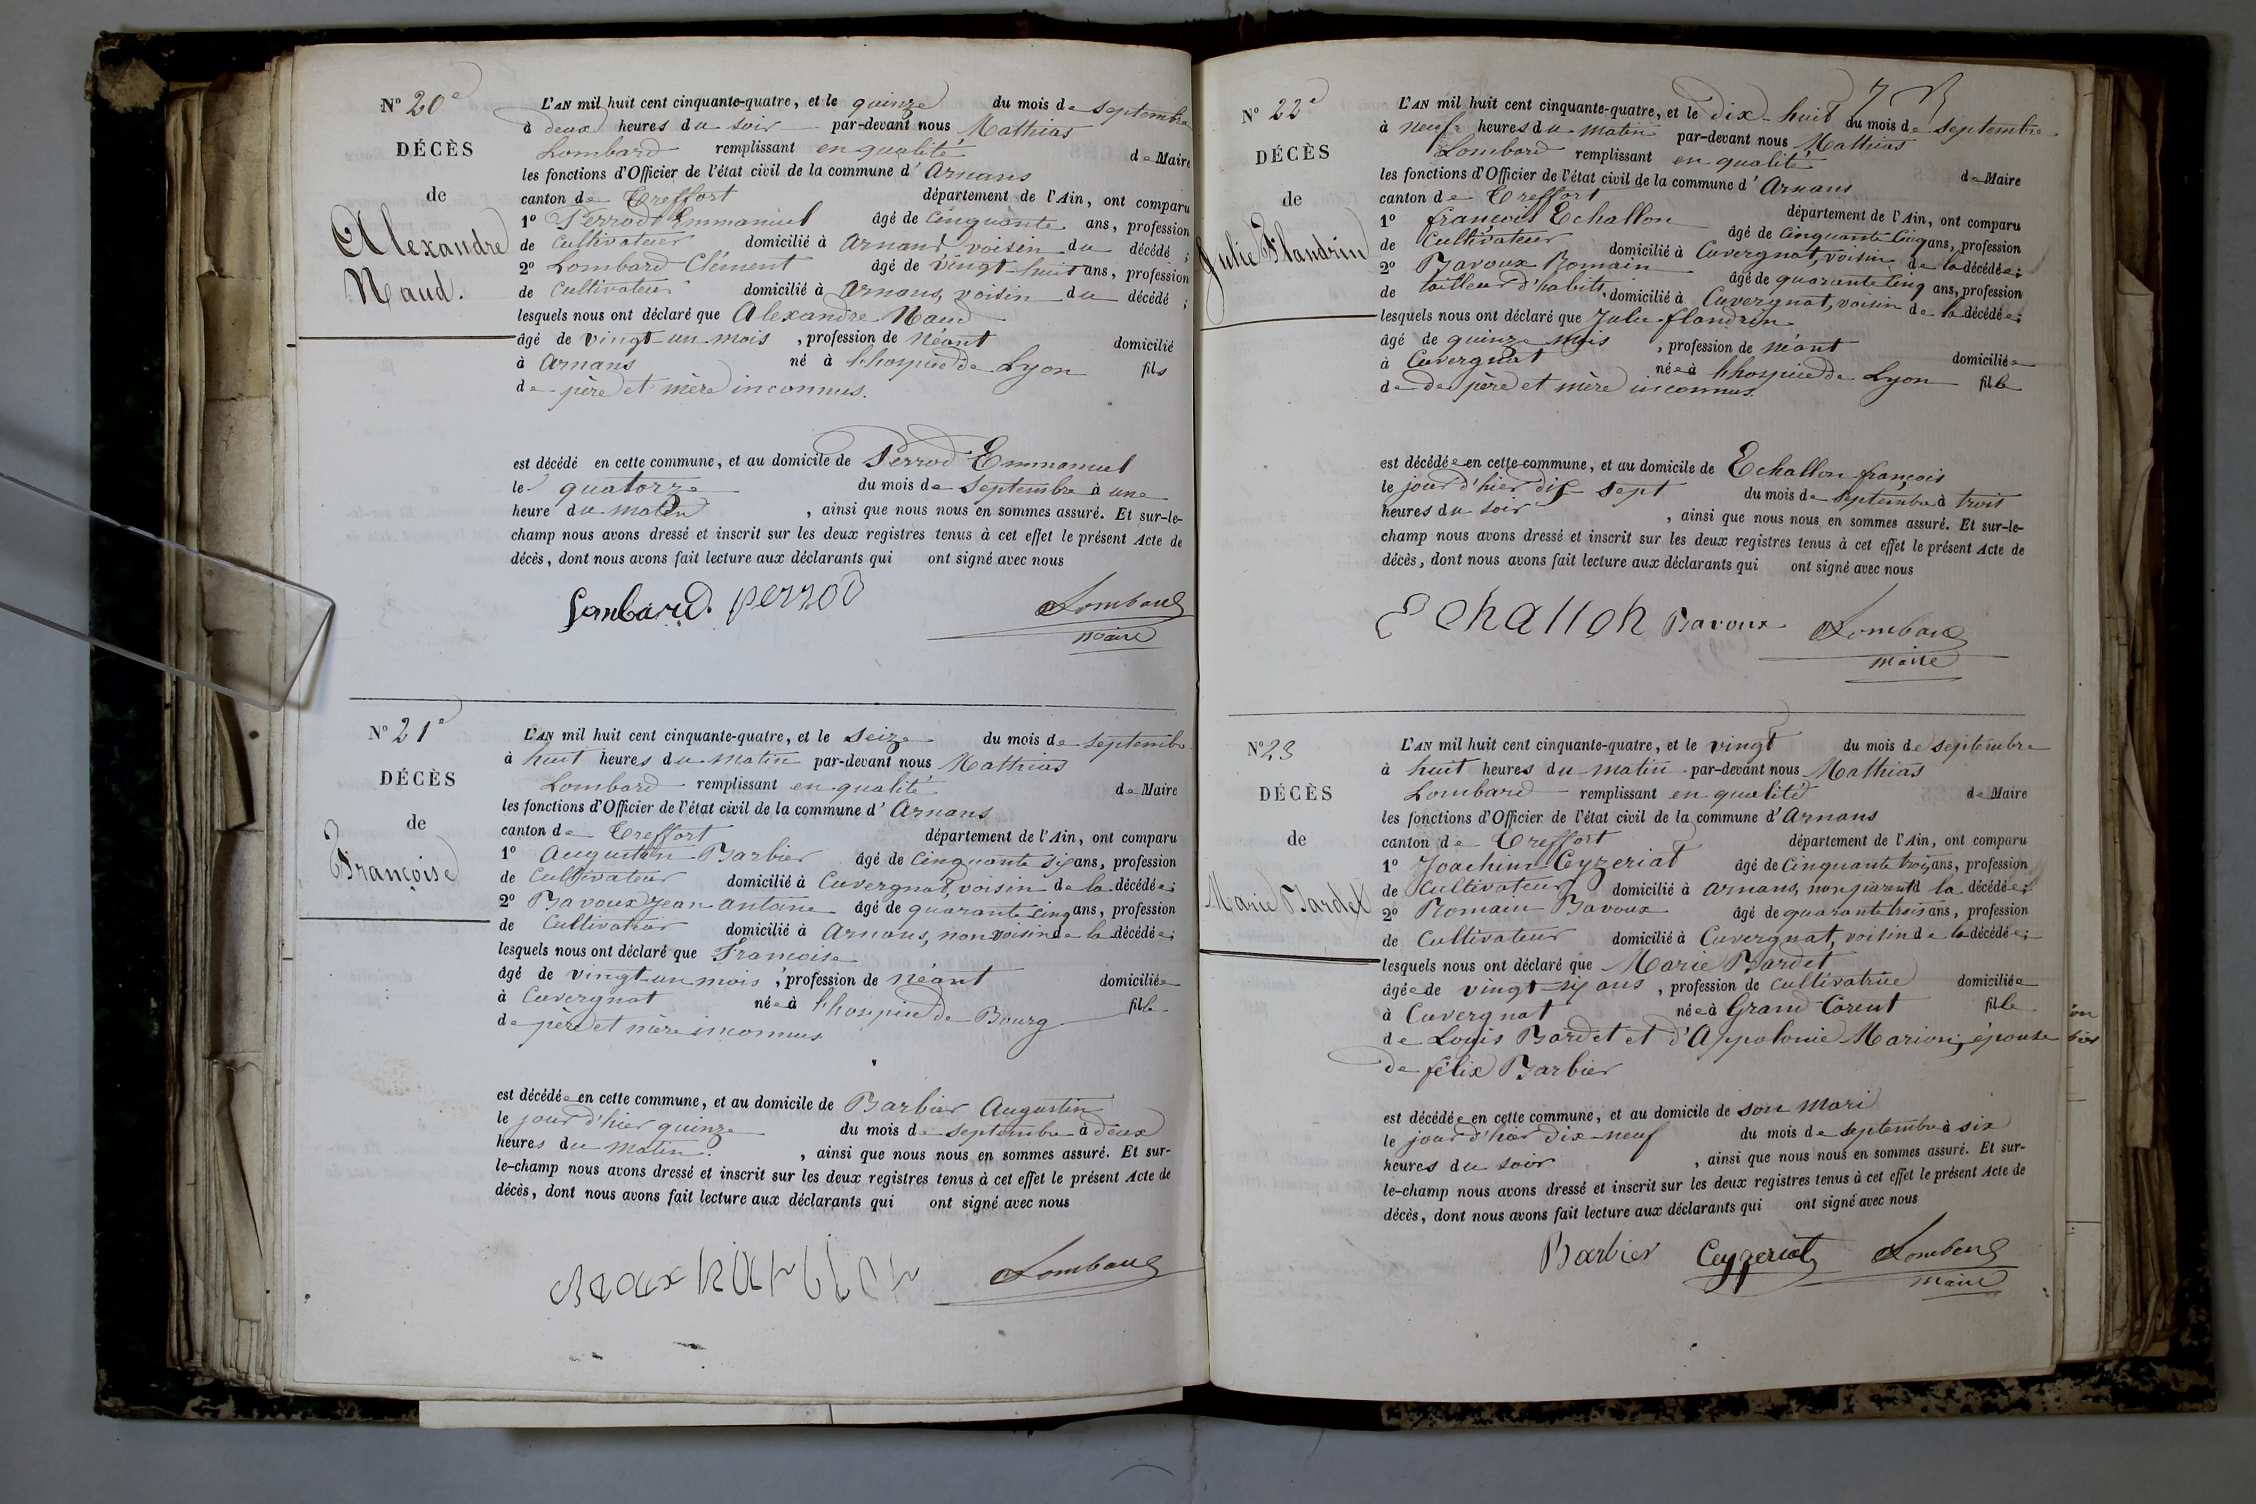 Nº 20e
DÉCÈS
de
Alexandre
Naud.
L'AN mil huit cent cinquante-quatre, et le quinze du mois de septembre
à deux heures du soir par-devant nous Mathias
Lombard remplissant en qualité de Maire
les fonctions d'Officier de l'état civil de la commune d'Arnans
canton de Treffort département de l'Ain, ont comparu
1º Perrod Emmanuel âgé de cinquante ans, profession
de cultivateur domicilié à Arnans, voisin du décédé ;
2º Lombard Clément âgé de vingt-huit ans, profession
de cultivateur domicilié à Arnans, voisin du décédé ;
lesquels nous ont déclaré que Alexandre Naud
âgé de vingt un mois, profession de néant domicilié
à Arnans né à l'hospice de Lyon fils
de père et mère inconnus.
est décédé en cette commune, et au domicile de Perrod Emmanuel
le quatorze du mois de septembre à une
heure du matin, ainsi que nous nous en sommes assuré. Et sur-le-
champ nous avons dressé et inscrit sur les deux registres tenus à cet effet le présent Acte de
décès, dont nous avons fait lecture aux déclarants qui ont signé avec nous
Lombard. perrod Lombard
maire
Nº 21e
DÉCÈS
de
Françoise
L'AN mil huit cent cinquante-quatre, et le seize du mois de septembre
à huit heures du matin par-devant nous Mathias
Lombard remplissant en qualité de Maire
les fonctions d'Officier de l'état civil de la commune d'Arnans
canton de Treffort département de l'Ain, ont comparu
1º Augustin Barbier âgé de cinquante six ans, profession
de cultivateur domicilié à Cuvergnat, voisin de la décédée ;
2º Bavoux Jean Antoine âgé de quarante cinq ans, profession
de cultivateur domicilié à Arnans, non voisin de la décédée ;
lesquels nous ont déclaré que Françoise
âgé de vingt un mois, profession de néant domiciliée
à Cuvergnat née à l'hospice de Bourg fille
de père et mère inconnus
est décédée en cette commune, et au domicile de Barbier Augustin
le jour d'hier quinze du mois de septembre à deux
heures du matin., ainsi que nous nous en sommes assuré. Et sur-
le-champ nous avons dressé et inscrit sur les deux registres tenus à cet effet le présent Acte de
décès, dont nous avons fait lecture aux déclarants qui ont signé avec nous
Lombard
Nº 22e
DÉCÈS
de
Julie Flandrin
L'AN mil huit cent cinquante-quatre, et le dix-huit du mois de septembre
à neuf heures du matin par-devant nous Mathias
Lombard remplissant en qualité de Maire
les fonctions d'Officier de l'état civil de la commune d'Arnans
canton de Treffort département de l'Ain, ont comparu
1º françois Echallon âgé de cinquante cinq ans, profession
de cultivateur domicilié à Cuvergnat, voisin de la décédée ;
2º Bavoux Romain âgé de quarante cinq ans, profession
de tailleur d'habits, domicilié à Cuvergnat, voisin de la décédée ;
lesquels nous ont déclaré que Julie flandrin
âgé de quinze mois, profession de néant domiciliée
à Cuvergnat née à l'hospice de Lyon fille
de de père et mère inconnus.
est décédée en cette commune, et au domicile de Echallon françois
le jour d'hier dix sept du mois de septembre à trois
heures du soir, ainsi que nous nous en sommes assuré. Et sur-le-
champ nous avons dressé et inscrit sur les deux registres tenus à cet effet le présent Acte de
décès, dont nous avons fait lecture aux déclarants qui ont signé avec nous
Echallon Bavoux Lombard
maire
Nº 23
DÉCÈS
de
Marie Bardet
L'AN mil huit cent cinquante-quatre, et le vingt du mois de septembre
à huit heures du matin par-devant nous Mathias
Lombard remplissant en qualité de Maire
les fonctions d'Officier de l'état civil de la commune d'Arnans
canton de Treffort département de l'Ain, ont comparu
1º Joachim Ceyzeriat âgé de cinquante trois ans, profession
de cultivateur domicilié à Arnans, non parent de la décédée ;
2º Romain Bavoux âgé de quarante trois ans, profession
de cultivateur domicilié à Cuvergnat, voisin de la décédée ;
lesquels nous ont déclaré que Marie Bardet
âgée de vingt-six ans, profession de cultivatrice domiciliée
à Cuvergnat née à Grand Corent fille
de Louis Bardet et d'Appolonie Marion, épouse
de félix Barbier
est décédée en cette commune, et au domicile de son mari
le jour d'hier dix-neuf du mois de septembre à six
heures du soir, ainsi que nous nous en sommes assuré. Et sur-
le-champ nous avons dressé et inscrit sur les deux registres tenus à cet effet le présent Acte de
décès, dont nous avons fait lecture aux déclarants qui ont signé avec nous
Barbier Ceyzeriat Lombard
maire